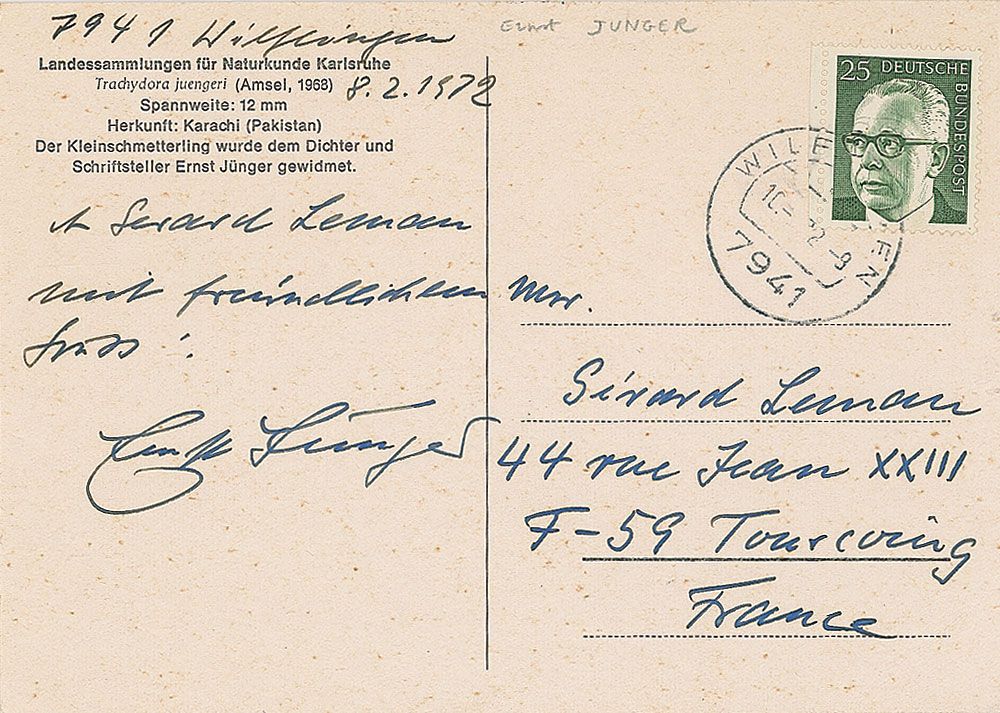 7941 Wilflingen
Ernst JUNGER
Landessammlungen für Naturkunde Karlsruhe
Trachydora juengeri (Amsel, 1968)
8.2.1972
Spannweite: 12 mm
Herkunft: Karachi (Pakistan)
Der Kleinschmetterling wurde dem Dichter und
Schriftsteller Ernst Jünger gewidmet.
Gerard Leman
mit freundlichem
Gruss:
Ernst Jünger
25 DEUTSCHE
BUNDESPOST
WILF EN
7941
Mr.
Gérard Leman
44 rue Jean XXIII
F-59 Tourcoing
France